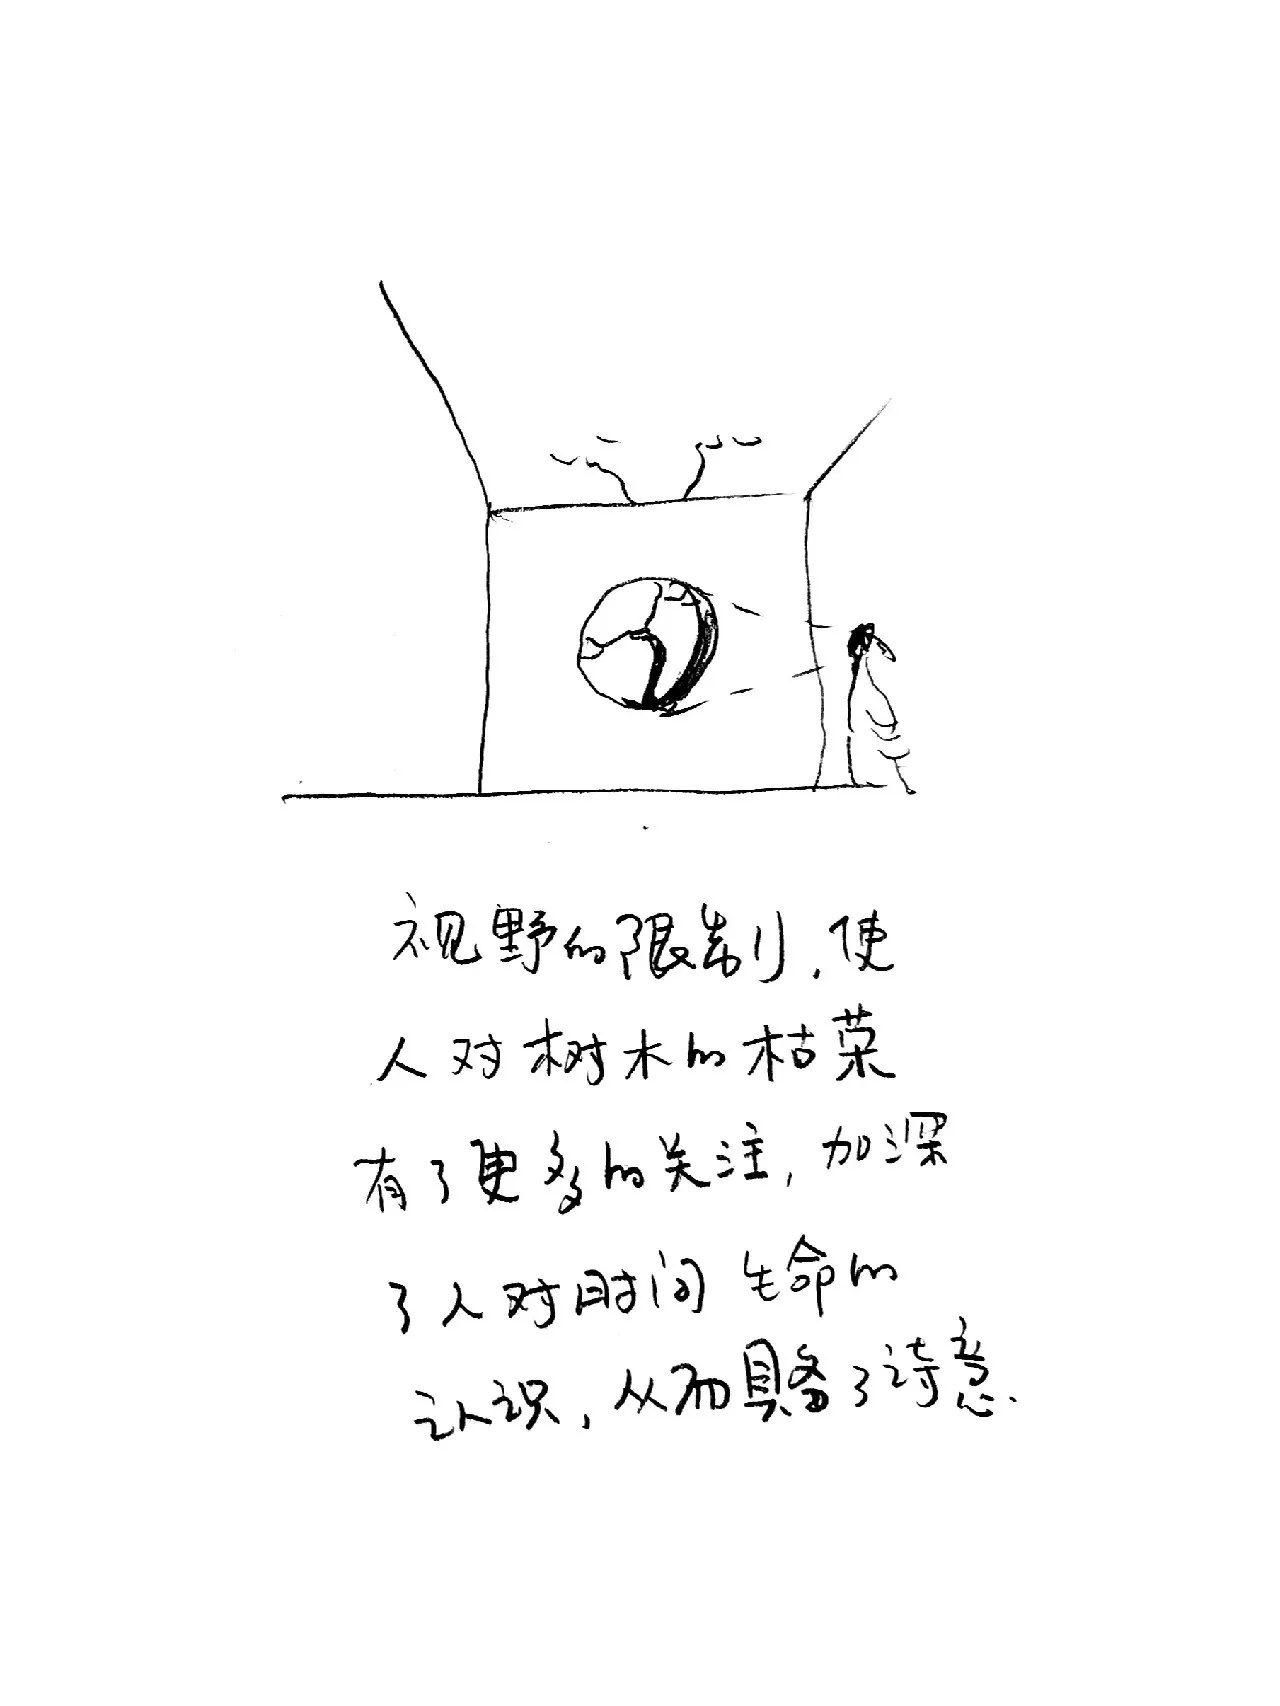 视野的限制，使
人对树木的枯荣
有了更多的关注，加深
了人对时间 生命的
认识，从而具备了诗意.